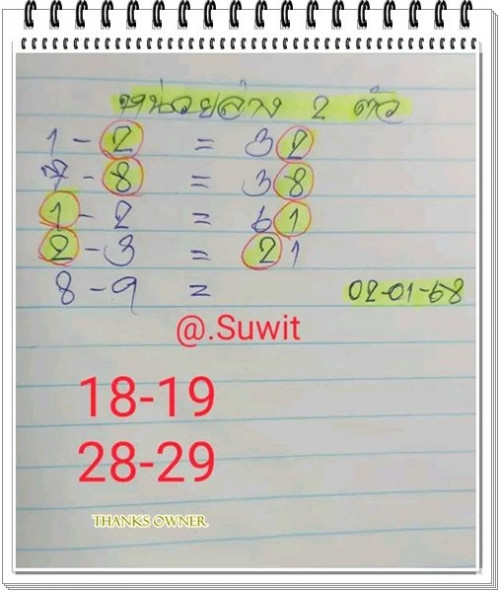 หน่วยล่าง 2 ตัว
1 - 2 = 32
7 - 8 = 38
1 - 2 = 61
2 - 3 = 21
8 - 9 =
02-01-68
@.Suwit
18-19
28-29
THANKS OWNER